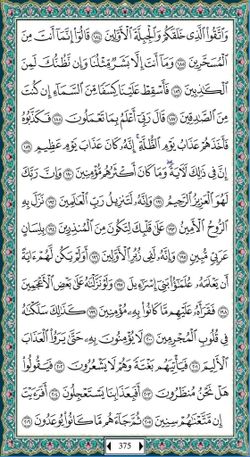 وَاتَّقُوا الَّذِي خَلَقَكُمْ وَالْجِبِلَّةَ الْأَوَّلِينَ ١٨٤ قَالُوا إِنَّمَا أَنتَ مِنَ
الْمُسَحَّرِينَ ١٨٥ وَمَا أَنتَ إِلَّا بَشَرٌ مِّثْلُنَا وَإِن نَّظُنُّكَ لَمِنَ
الْكَاذِبِينَ ١٨٦ فَأَسْقِطْ عَلَيْنَا كِسَفًا مِّنَ السَّمَاءِ إِن كُنتَ
مِنَ الصَّادِقِينَ ١٨٧ قَالَ رَبِّي أَعْلَمُ بِمَا تَعْمَلُونَ ١٨٨ فَكَذَّبُوهُ
فَأَخَذَهُمْ عَذَابُ يَوْمِ الظُّلَّةِ ۚ إِنَّهُ كَانَ عَذَابَ يَوْمٍ عَظِيمٍ ١٨٩
إِنَّ فِي ذَٰلِكَ لَآيَةً ۖ وَمَا كَانَ أَكْثَرُهُم مُّؤْمِنِينَ ١٩٠ وَإِنَّ رَبَّكَ
لَهُوَ الْعَزِيزُ الرَّحِيمُ ١٩١ وَإِنَّهُ لَتَنزِيلُ رَبِّ الْعَالَمِينَ ١٩٢ نَزَلَ بِهِ
الرُّوحُ الْأَمِينُ ١٩٣ عَلَىٰ قَلْبِكَ لِتَكُونَ مِنَ الْمُنذِرِينَ ١٩٤ بِلِسَانٍ
عَرَبِيٍّ مُّبِينٍ ١٩٥ وَإِنَّهُ لَفِي زُبُرِ الْأَوَّلِينَ ١٩٦ أَوَلَمْ يَكُن لَّهُمْ آيَةً
أَن يَعْلَمَهُ عُلَمَاءُ بَنِي إِسْرَائِيلَ ١٩٧ وَلَوْ نَزَّلْنَاهُ عَلَىٰ بَعْضِ الْأَعْجَمِينَ
١٩٨ فَقَرَأَهُ عَلَيْهِم مَّا كَانُوا بِهِ مُؤْمِنِينَ ١٩٩ كَذَٰلِكَ سَلَكْنَاهُ
فِي قُلُوبِ الْمُجْرِمِينَ ٢٠٠ لَا يُؤْمِنُونَ بِهِ حَتَّىٰ يَرَوُا الْعَذَابَ
الْأَلِيمَ ٢٠١ فَيَأْتِيَهُم بَغْتَةً وَهُمْ لَا يَشْعُرُونَ ٢٠٢ فَيَقُولُوا
هَلْ نَحْنُ مُنظَرُونَ ٢٠٣ أَفَبِعَذَابِنَا يَسْتَعْجِلُونَ ٢٠٤ أَفَرَأَيْتَ
إِن مَّتَّعْنَاهُمْ سِنِينَ ٢٠٥ ثُمَّ جَاءَهُم مَّا كَانُوا يُوعَدُونَ ٢٠٦
375